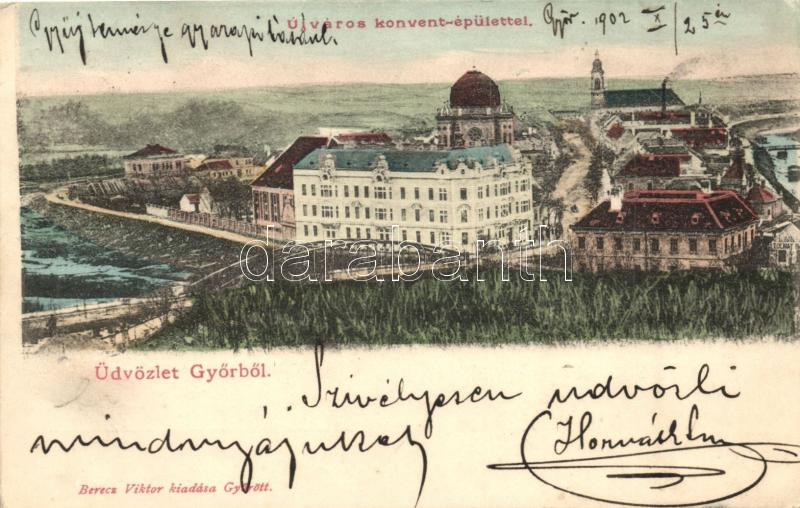 Gyüjteménye gyarapitásául.
Újváros konvent-épülettel.
Győr. 1902 X 25 én
darabanth
Üdvözlet Győrből.
Szivélyesen üdvözli
mindnyájukat
Horváth
Berecz Viktor kiadása Győrött.